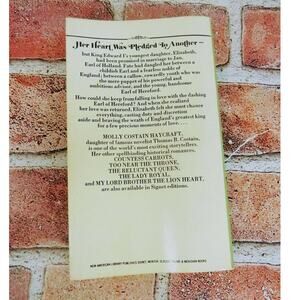 Her Heart Was Pledged To Another—
but King Edward I's youngest daughter, Elizabeth,
had been promised in marriage to Jan,
Earl of Holland. Fate had dangled her between a
childish Earl and a fearless noble of
England; between a callow, cowardly youth who was
the mere puppet of his powerful and
ambitious advisor, and the young, handsome
Earl of Hereford.
How could she keep from falling in love with the dashing
Earl of Hereford? And when she realized
her love was returned, Elizabeth felt she must chance
everything, casting duty and discretion
aside and braving the wrath of England's greatest king
for a few precious moments of love. . . .
MOLLY COSTAIN HAYCRAFT,
daughter of famous novelist Thomas B. Costain,
is one of the world's most exciting storytellers.
Her other spellbinding historical romances,
COUNTESS CARROTS,
TOO NEAR THE THRONE,
THE RELUCTANT QUEEN,
THE LADY ROYAL,
and MY LORD BROTHER THE LION HEART,
are also available in Signet editions.
NEW AMERICAN LIBRARY PUBLISHES SIGNET, MENTOR, CLASSIC, PLUME & MERIDIAN BOOKS